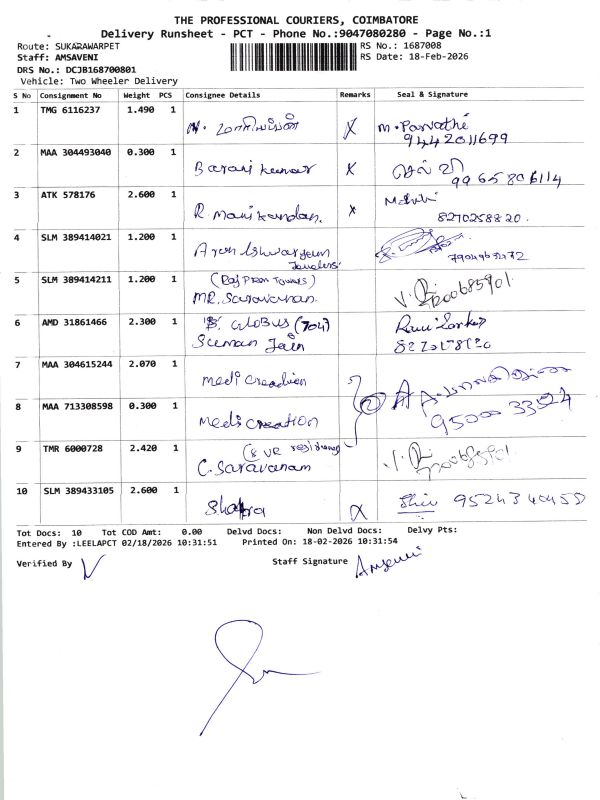 THE PROFESSIONAL COURIERS, COIMBATORE
Delivery Runsheet - PCT - Phone No.:9047080280 - Page No.:1
Route: SUKARAWARPET
RS No.: 1687008
Staff: AMSAVENI
RS Date: 18-Feb-2026
DRS No.: DCJB168700801
Vehicle: Two Wheeler Delivery
S No Consignment No Weight PCS Consignee Details Remarks Seal & Signature
1 TMG 6116237 1.490 1 M. Parvathi
9442011699
2 MAA 304493040 0.300 1 Barani kumar X செல்வி
9965806114
3 ATK 578176 2.600 1 R. Manikandan. x
8270258820.
4 SLM 389414021 1.200 1
Jewellers
5 SLM 389414211 1.200 1 (Raj Prem Towers)
MR. Saravanan. V.
6 AMD 31861466 2.300 1 B. GLOBUS (704)
Suman Jain
7 MAA 304615244 2.070 1 Medi Creation
8 MAA 713308598 0.300 1 Medi Creation
95000 33524
9 TMR 6000728 2.420 1
C. Saravanam V.
10 SLM 389433105 2.600 1 9524340455
Tot Docs: 10 Tot COD Amt: 0.00 Delvd Docs: Non Delvd Docs: Delvy Pts:
Entered By :LEELAPCT 02/18/2026 10:31:51 Printed On: 18-02-2026 10:31:54
Verified By
Staff Signature Amsaveni